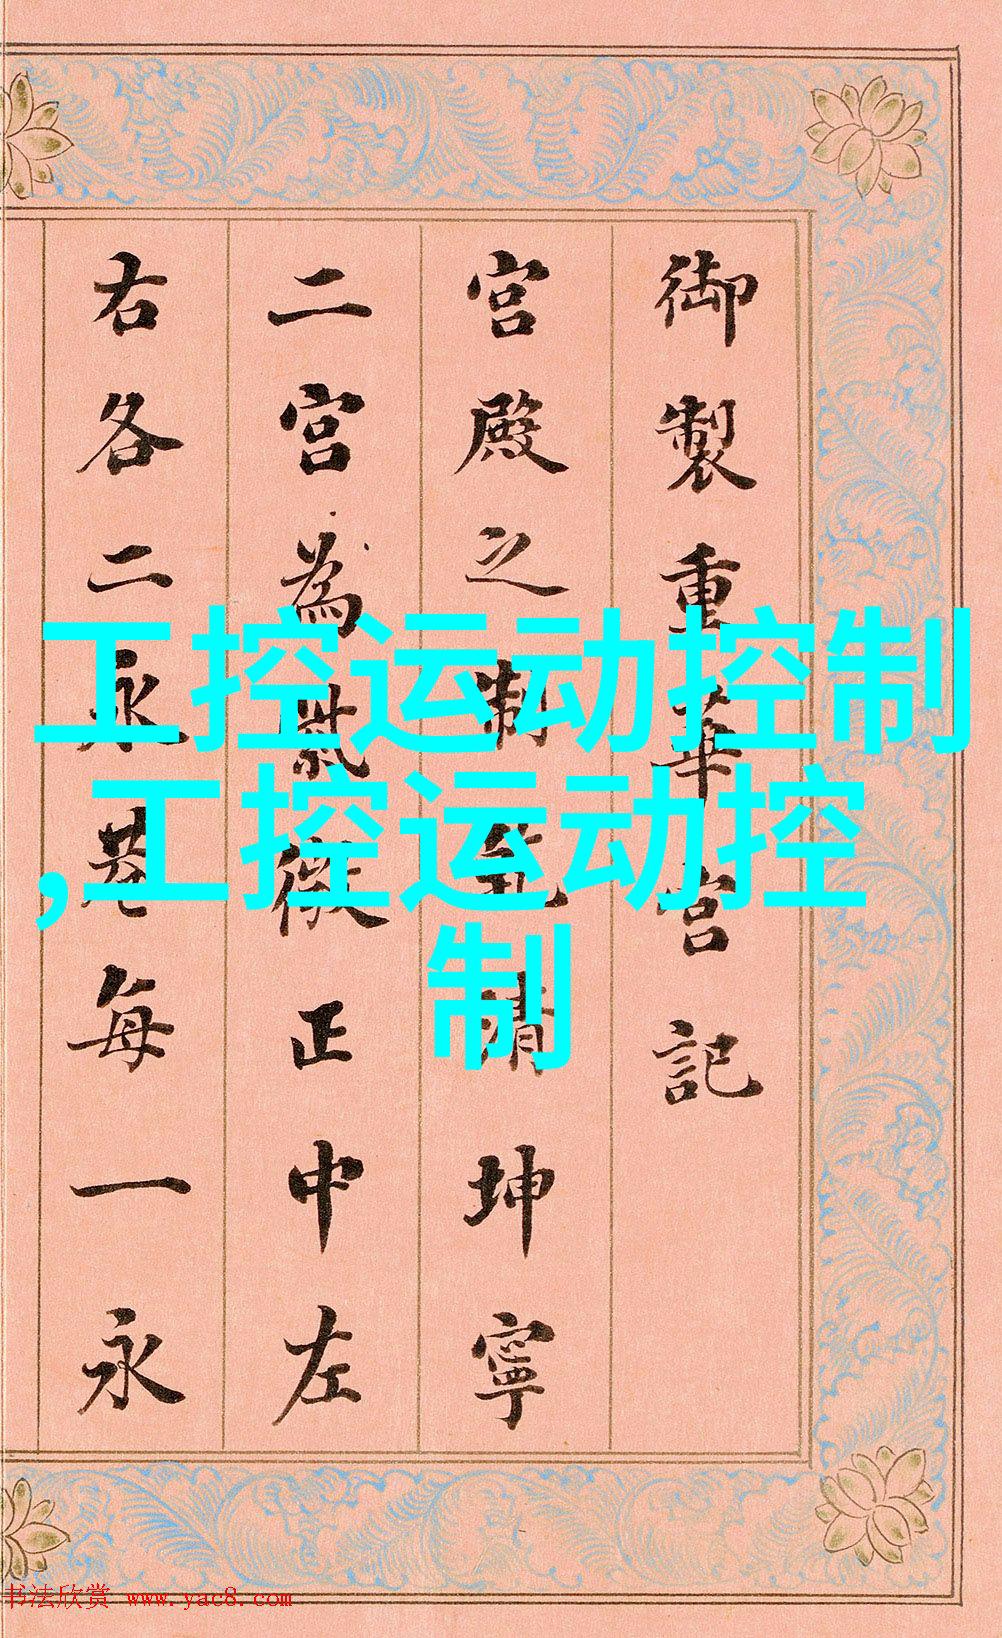 御製重華宮記
宮殿之制乾清坤寧
二宮為紫微正中左
右各二永巷每一永
工控运动控制
,工控运动控
制
书法欣赏 www.yac8.com